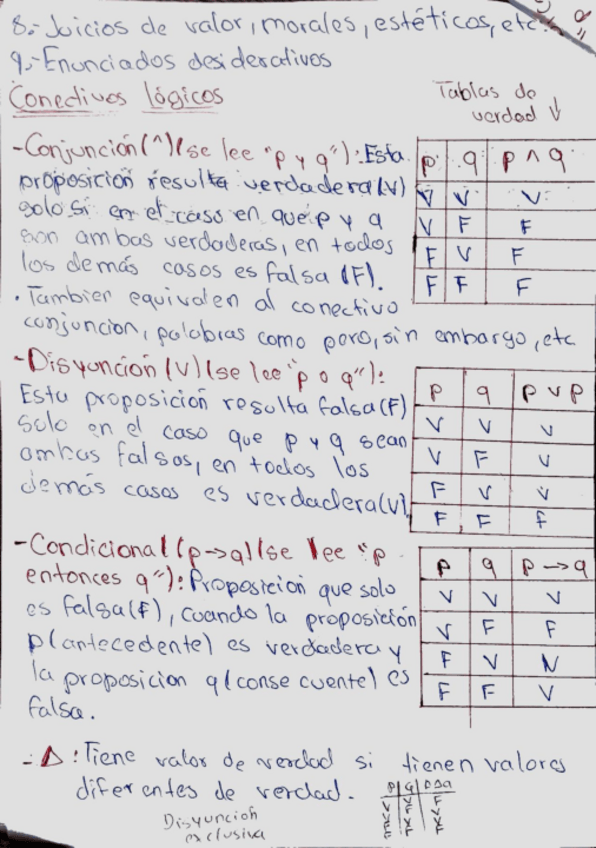 8.- Juicios de valor, morales, estéticos, etc.
9.- Enunciados desiderativos
Conectivos lógicos
Tablas de
verdad ↓
-Conjunción (^) (se lee "p y q"): Esta
proposición resulta verdadera (V)
solo si en el caso en que p y q
son ambas verdaderas, en todos
los demás casos es falsa (F).
p q p ∧ q
V V V
V F F
F V F
F F F
· Tambien equivalen al conectivo
conjuncion, palabras como pero, sin embargo, etc
-Disyunción (V) (se lee "p o q"):
Esta proposición resulta falsa (F)
solo en el caso que p y q sean
ambas falsas, en todos los
demás casos es verdadera (V).
p q p v p
V V V
V F V
F V V
F F f
-Condicional (p→q) (se lee "p
entonces q"): Proposicion que solo
es falsa (F), cuando la proposición
p (antecedente) es verdadera y
la proposicion q (consecuente) es
falsa.
p q p → q
V V V
V F F
F V V
F F V
- Δ: Tiene valor de verdad si tienen valores
diferentes de verdad.
Disyuncion
exclusiva
p q p Δ q
V V F
V F V
F V V
F F F